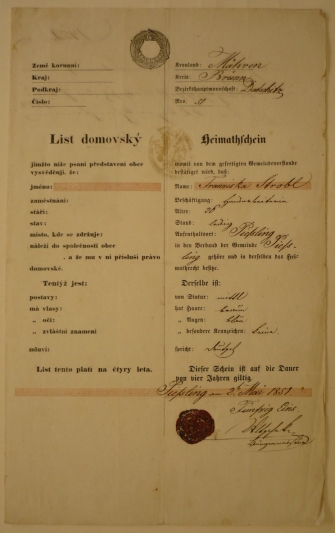 Země korunní:
Kraj:
Podkraj:
Číslo:
Kronland: Mähren
Kreis: Brünn
Bezirkshauptmannschaft:
Nro.
List domovský
jímžto níže psaní představení obce
vysvědčují, že:
jméno:
zaměstnání:
stáří:
stav:
místo, kde se zdržuje:
náleží do společnosti obce
. a že mu v ní přísluší právo
domovské.
Tentýž jest:
postavy:
má vlasy:
„ oči:
„ zvláštní znamení
mluví:
List tento platí na čtyry leta.
Heimathschein
womit von dem gefertigten Gemeindevorstande
bestätiget wird, daß:
Name: Franziska Strobl
Beschäftigung:
Alter:
Stand: ledig
Aufenthaltsort:
in den Verband der Gemeinde
gehöre und in derselben das Hei-
mathrecht besitze.
Derselbe ist:
von Statur: mittel
hat Haare: braun
„ Augen: blau
„ besondere Kennzeichen: keine
spricht: deutsch
Dieser Schein ist auf die Dauer
von vier Jahren giltig.
am 2. Mai 1851
Fünfzig Eins